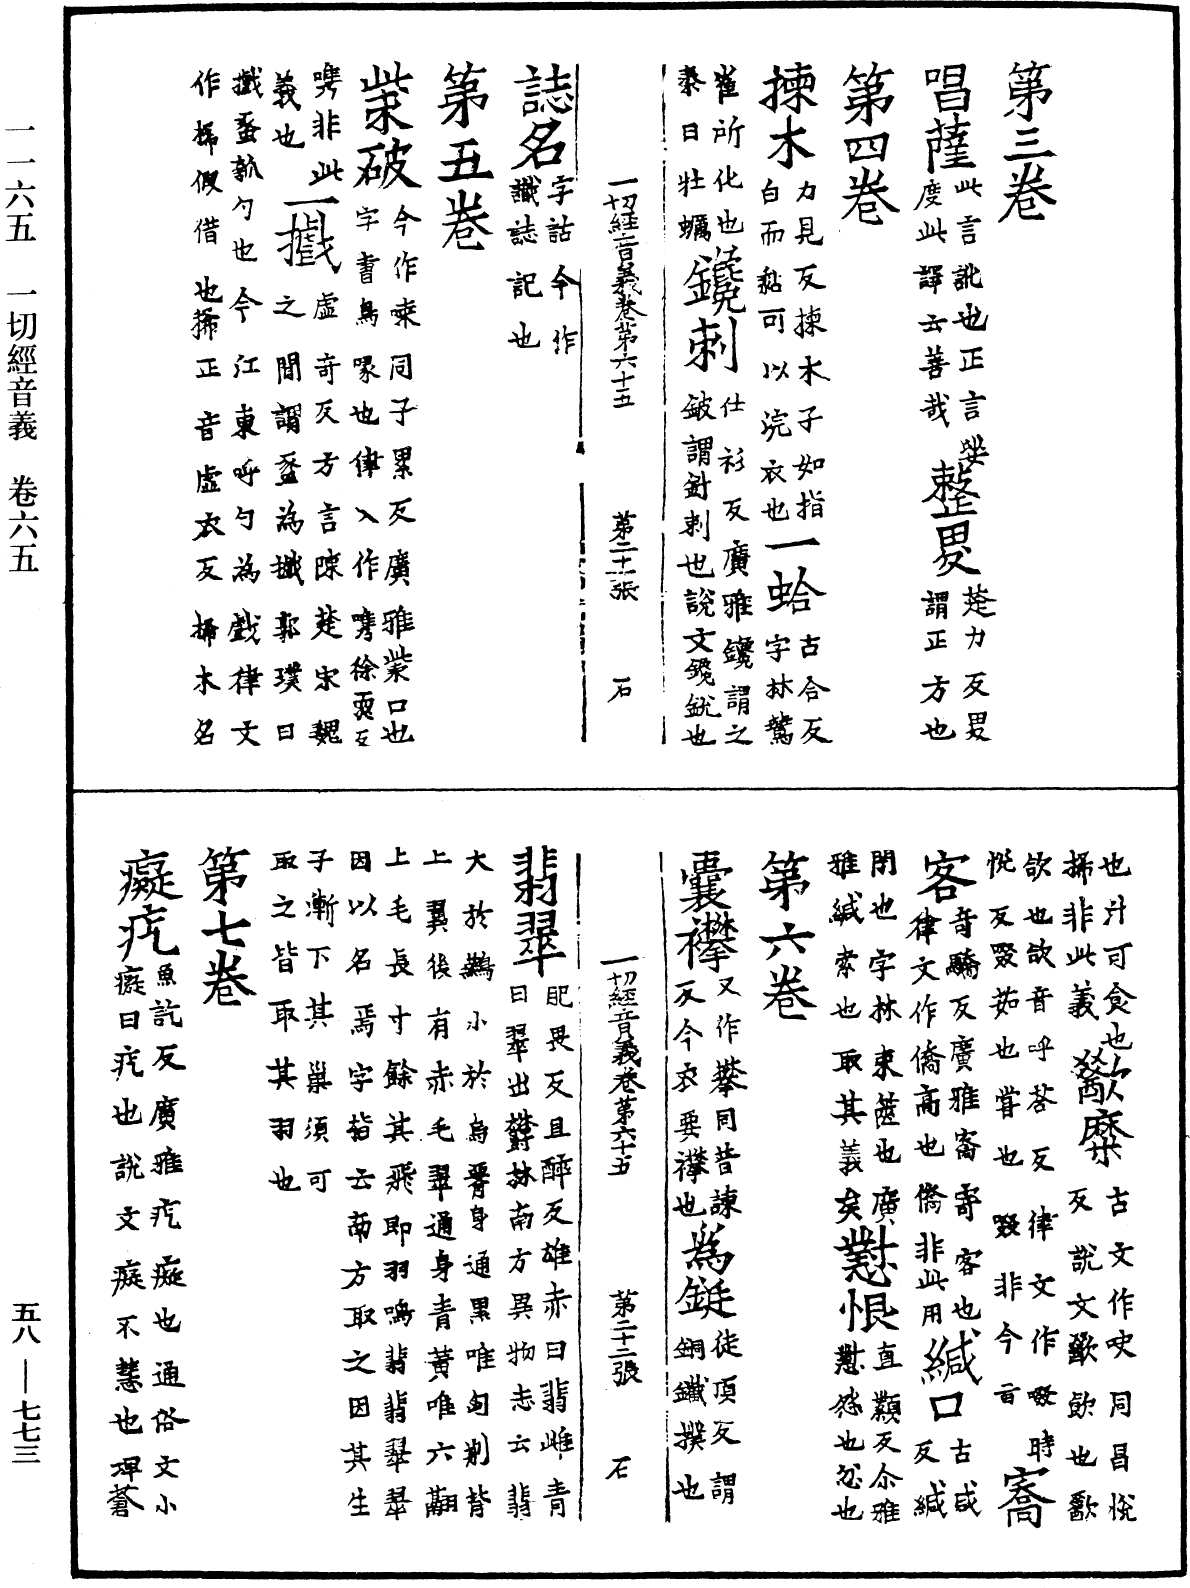 一一六五 一切經音義 卷六五
五八—七七三
第三卷
唱薩此言訛也正言娑
度此譯云善哉 整畟楚力反畟
謂正方也
第四卷
揀木力見反揀木子如指
白而黏可以浣衣也 一蛤古合反
字林䳺
雀所化也
㯃曰牡蠣 鑱刺仕衫反廣雅鑱謂之
鈹謂針刺也說文鑱銳也
一切經音義卷第六十五 第二十一張 石
誌名字詁今作
讖誌記也
第五卷
㭰破今作㭰同子累反廣雅㭰口也
字書鳥喙也律入作㗻徐耎反
㗻非此
義也 一㩍虛奇反方言陳楚宋魏
之間謂蠡為㩍郭璞曰
㩍蠡瓠勺也今江東呼勺為戲律文
作㮆假借也㮆正音虛衣反㮆木名
也汁可食也
㮆非此義 歠糜古文作吷同昌悅
反說文歠飲也歠
欱也欱音呼荅反律文作啜時
悅反啜茹也嘗也啜非今旨 㝯
客音驕反廣雅㝯寄客也
律文作僑高也僑非此用 緘口古咸
反緘
閉也字林束篋也廣
雅緘索也取其義矣 懟恨直類反尒雅
懟怨也忿也
第六卷
囊襻又作𢸅同普諫
反今衣要襻也 為鋌徒頂反謂
銅鐵撲也
一切經音義卷第六十五 第二十二張 石
翡翠肥畏反且醉反雄赤曰翡雌青
曰翠出鬱林南方異物志云翡
大於鷰小於烏脊身通黑唯匈前背
上翼後有赤毛翠通身青黃唯六翮
上毛長寸餘其飛即羽鳴翡翡翠翠
因以名焉字指云南方取之因其生
子漸下其巢須可
取之皆取其羽也
第七卷
癡疙魚訖反廣雅疙癡也通俗文小
癡曰疙也說文癡不慧也埤蒼